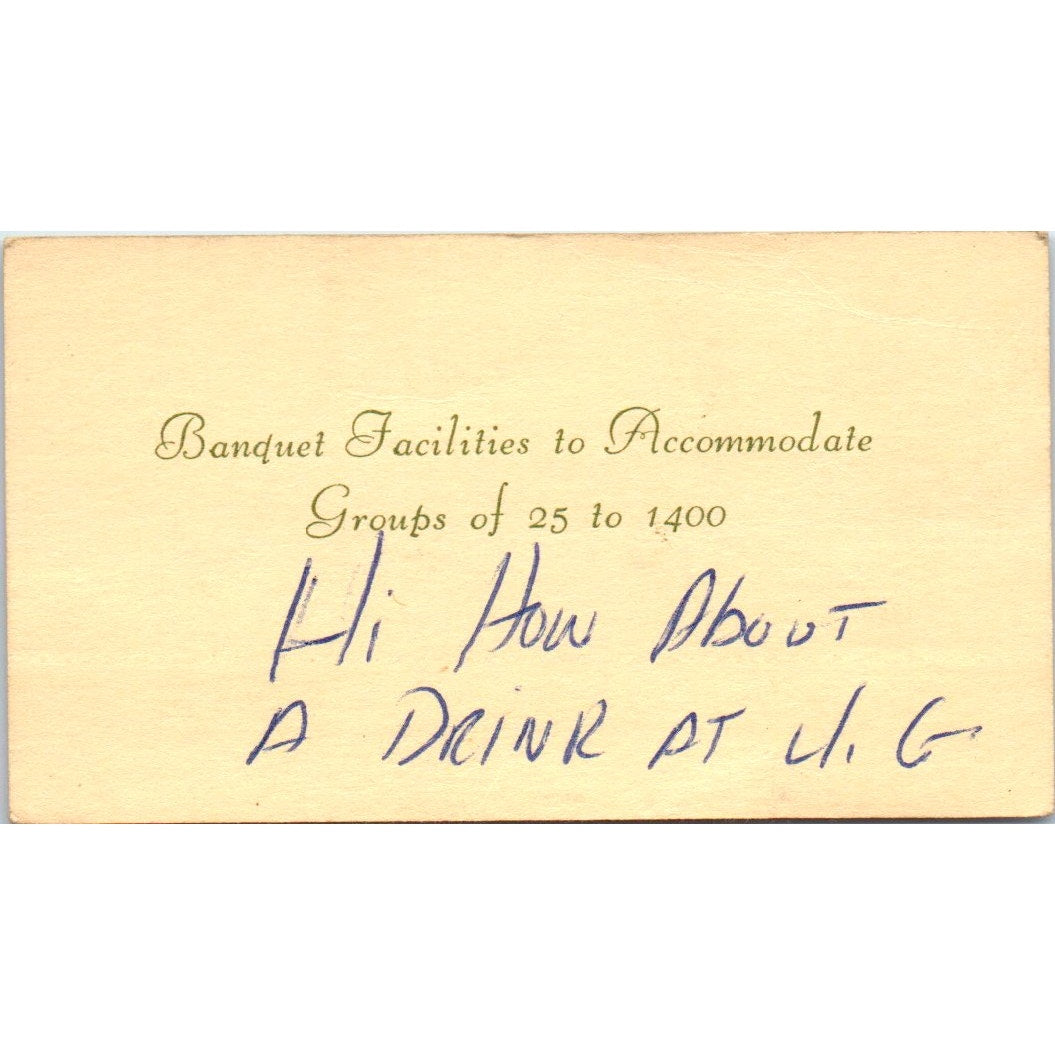 Banquet Facilities to Accommodate
Groups of 25 to 1400
Hi How About
A DRINK AT U. G